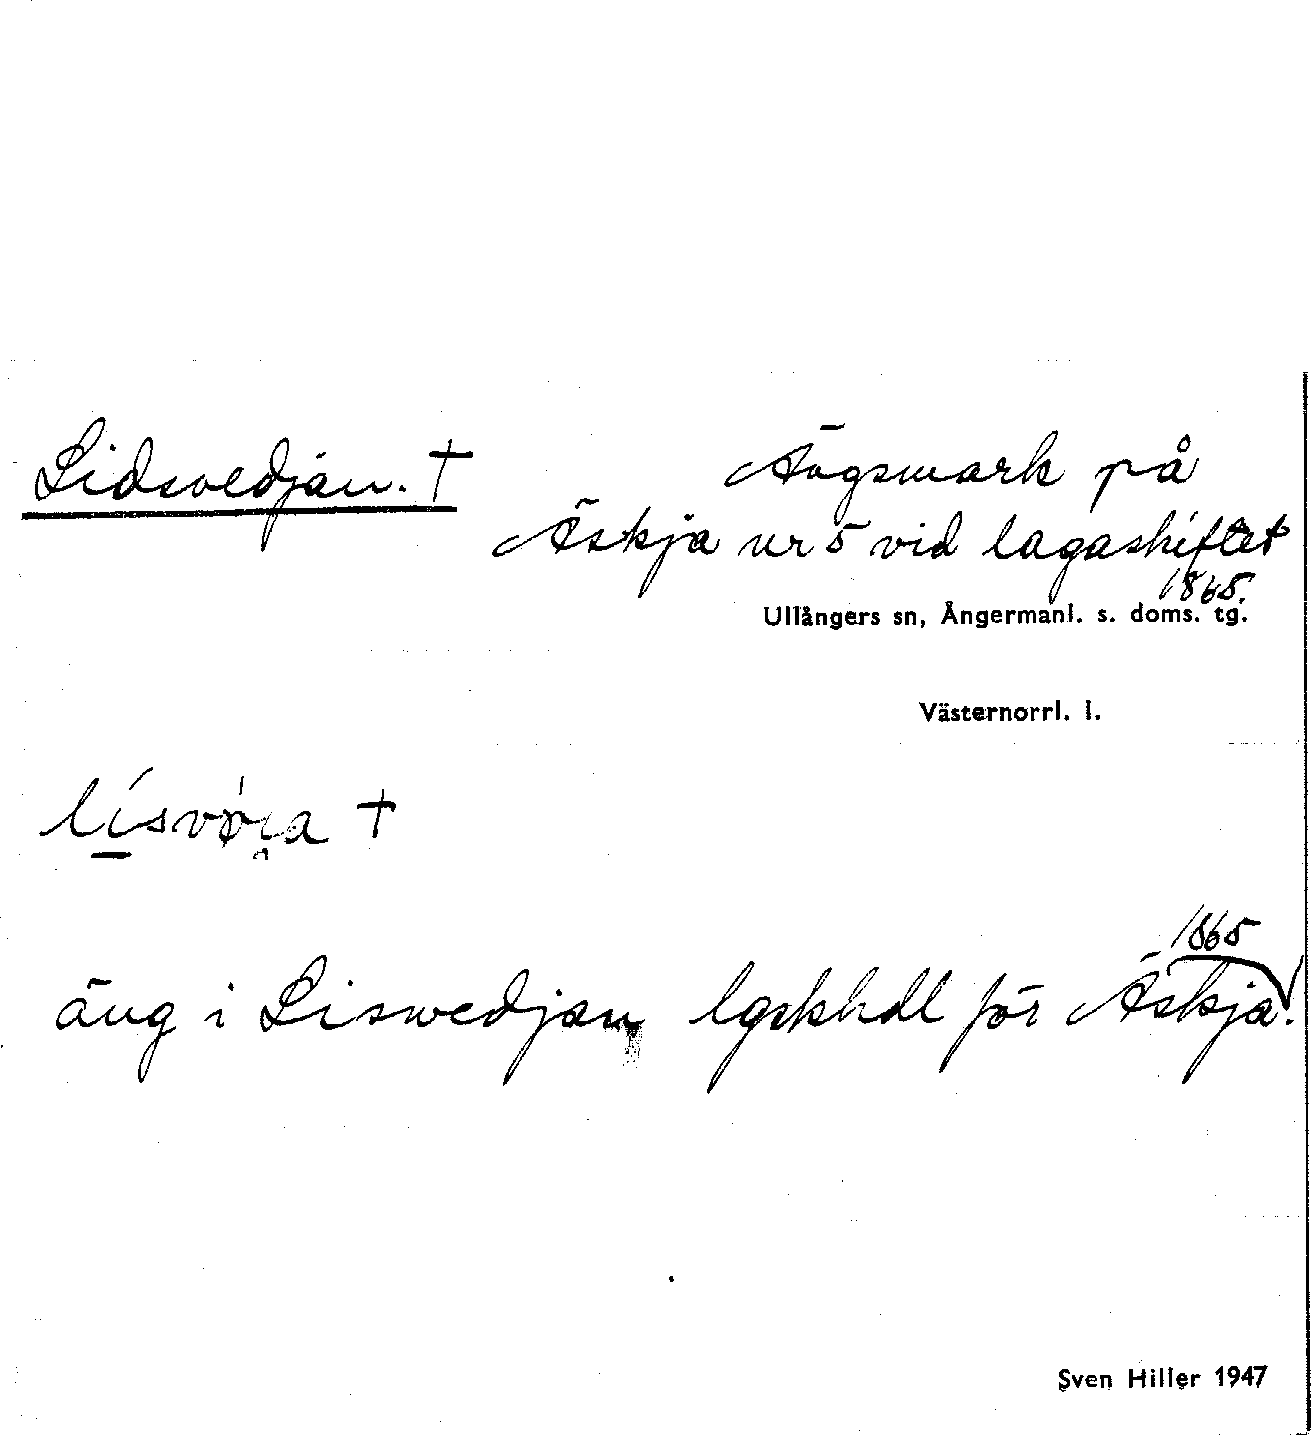 Lidsvedjan. †
Ängsmark på
Äskja nr 5 vid lagaskiftet
1865.
Ullångers sn, Ångermanl. s. doms. tg.
Västernorrl. l.
†
1865
äng i Liswedjan lgskhdl för Äskja.
Sven Hiller 1947